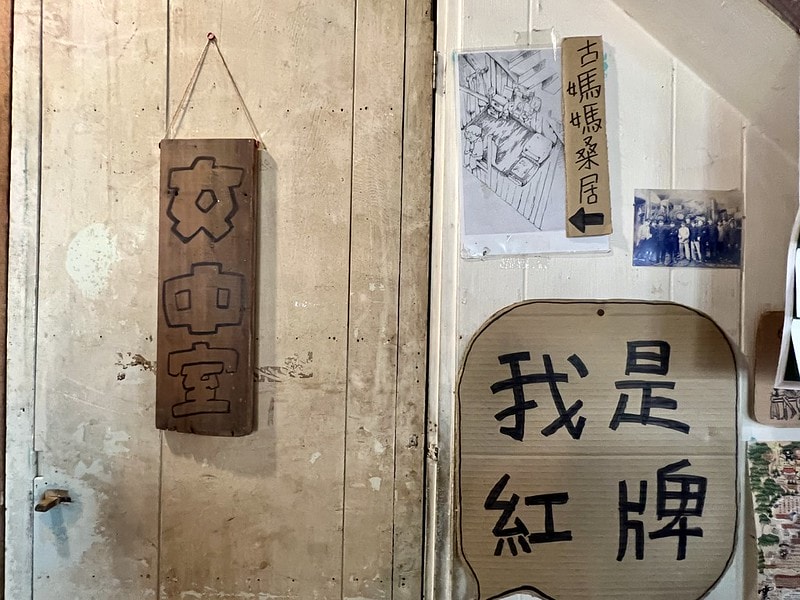 女中室
古媽媽桑居
我是
紅牌